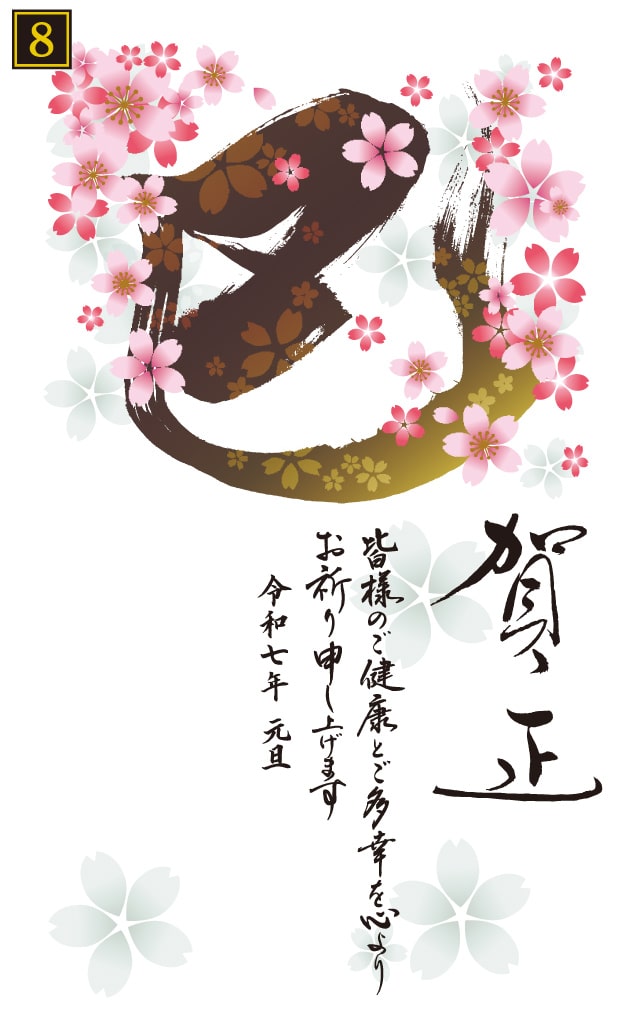 8
巳
賀正
皆様のご健康とご多幸を心より
お祈り申し上げます
令和七年 元旦